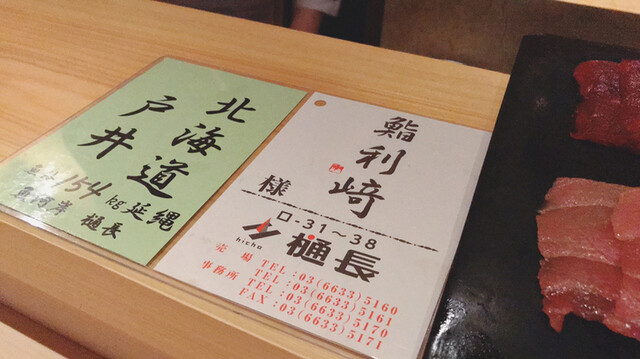 北海道
戸井
154kg延縄
魚河岸 樋長
鮨利﨑
様
ロ-31〜38
hicho
樋長
売場 TEL:03(6633)5160
TEL:03(6633)5161
事務所 TEL:03(6633)5170
FAX:03(6633)5171